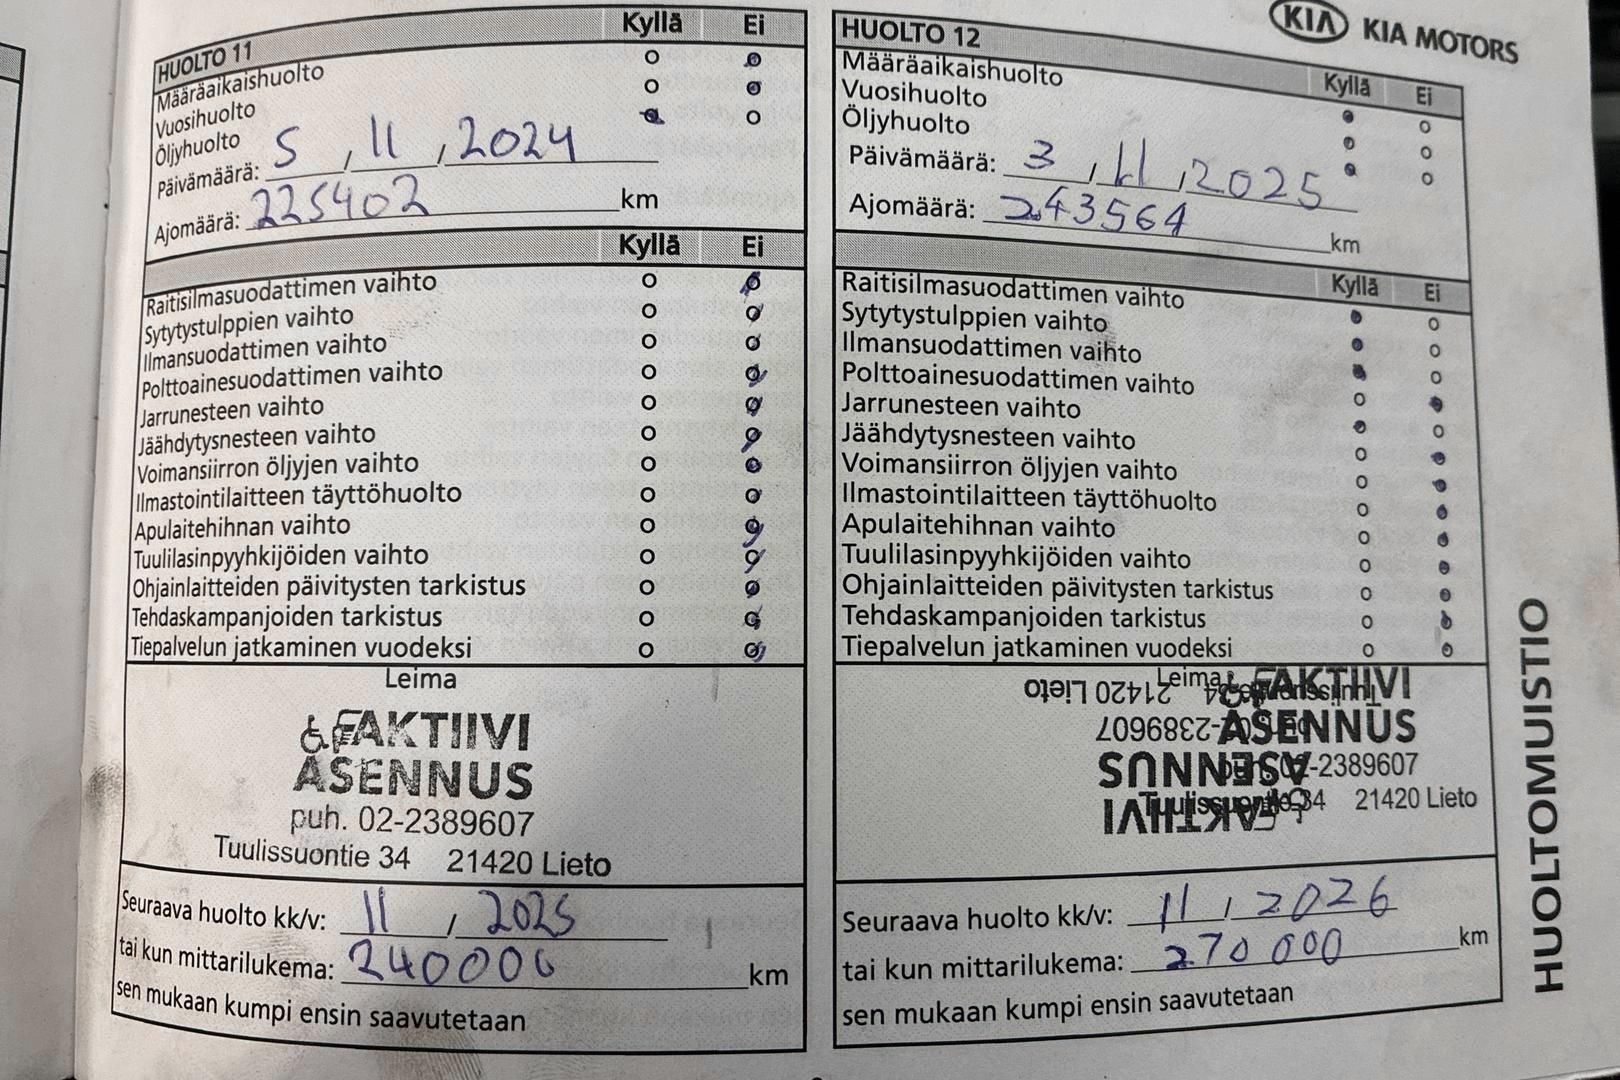 HUOLTO 11 Kyllä Ei
Määräaikaishuolto
Vuosihuolto
Öljyhuolto
Päivämäärä: 5 , 11 , 2024
Ajomäärä: 225402 km
Kyllä Ei
Raitisilmasuodattimen vaihto
Sytytystulppien vaihto
Ilmansuodattimen vaihto
Polttoainesuodattimen vaihto
Jarrunesteen vaihto
Jäähdytysnesteen vaihto
Voimansiirron öljyjen vaihto
Ilmastointilaitteen täyttöhuolto
Apulaitehihnan vaihto
Tuulilasinpyyhkijöiden vaihto
Ohjainlaitteiden päivitysten tarkistus
Tehdaskampanjoiden tarkistus
Tiepalvelun jatkaminen vuodeksi
Leima
FAKTIIVI
ASENNUS
puh. 02-2389607
Tuulissuontie 34 21420 Lieto
Seuraava huolto kk/v: 11 / 2025
tai kun mittarilukema: 240000 km
sen mukaan kumpi ensin saavutetaan
KIA KIA MOTORS
HUOLTO 12
Kyllä Ei
Määräaikaishuolto
Vuosihuolto
Öljyhuolto
Päivämäärä: 3 , 11 , 2025
Ajomäärä: 243564 km
Kyllä Ei
Raitisilmasuodattimen vaihto
Sytytystulppien vaihto
Ilmansuodattimen vaihto
Polttoainesuodattimen vaihto
Jarrunesteen vaihto
Jäähdytysnesteen vaihto
Voimansiirron öljyjen vaihto
Ilmastointilaitteen täyttöhuolto
Apulaitehihnan vaihto
Tuulilasinpyyhkijöiden vaihto
Ohjainlaitteiden päivitysten tarkistus
Tehdaskampanjoiden tarkistus
Tiepalvelun jatkaminen vuodeksi
Leima
FAKTIIVI
ASENNUS
puh. 02-2389607
Tuulissuontie 34 21420 Lieto
FAKTIIVI
ASENNUS
puh. 02-2389607
Tuulissuontie 34 21420 Lieto
Seuraava huolto kk/v: 11 / 2026
tai kun mittarilukema: 270 000 km
sen mukaan kumpi ensin saavutetaan
HUOLTOMUISTIO